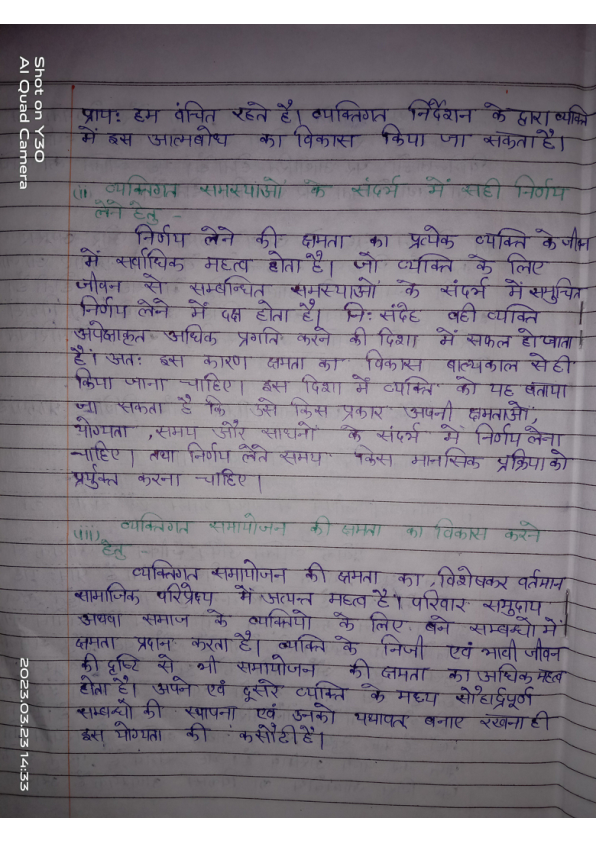 प्राय: हम वंचित रहते है। व्यक्तिगत निर्देशन के द्वारा व्यक्ति
में इस आत्मबोध का विकास किया जा सकता है।
(ii) व्यक्तिगत समस्याओं के संदर्भ में सही निर्णय
लेने हेतु -
निर्णय लेने की क्षमता का प्रत्येक व्यक्ति के जीवन
में सर्वाधिक महत्व होता है। जो व्यक्ति के लिए
जीवन से सम्बन्धित समस्याओं के संदर्भ में समुचित
निर्णय लेने में दक्ष होता है। नि: संदेह वही व्यक्ति
अपेक्षाकृत अधिक प्रगति करने की दिशा में सफल हो जाता
है। अत: इस कारण क्षमता का विकास बाल्यकाल से ही
किया जाना चाहिए। इस दिशा में व्यक्ति को यह बताया
जा सकता है कि उसे किस प्रकार अपनी क्षमताओं,
योग्यता, समय और साधनों के संदर्भ में निर्णय लेना
चाहिए। तथा निर्णय लेते समय किस मानसिक प्रक्रिया को
प्रयुक्त करना चाहिए।
(iii) व्यक्तिगत समायोजन की क्षमता का विकास करने
हेतु -
व्यक्तिगत समायोजन की क्षमता का, विशेषकर वर्तमान
सामाजिक परिप्रेक्ष्य में अत्यन्त महत्व है। परिवार समुदाय
अथवा समाज के व्यक्तियो के लिए बने सम्बन्धो में
क्षमता प्रदान करता है। व्यक्ति के निजी एवं भावी जीवन
की दृष्टि से भी समायोजन की क्षमता का अधिक महत्व
होता है। अपने एवं दूसरे व्यक्ति के मध्य सौहार्द्रपूर्ण
सम्बन्धो की स्थापना एवं उनको यथावत् बनाए रखना ही
इस योग्यता की कसौटी है।
Shot on Y30
AI Quad Camera
2023.03.23 14:33